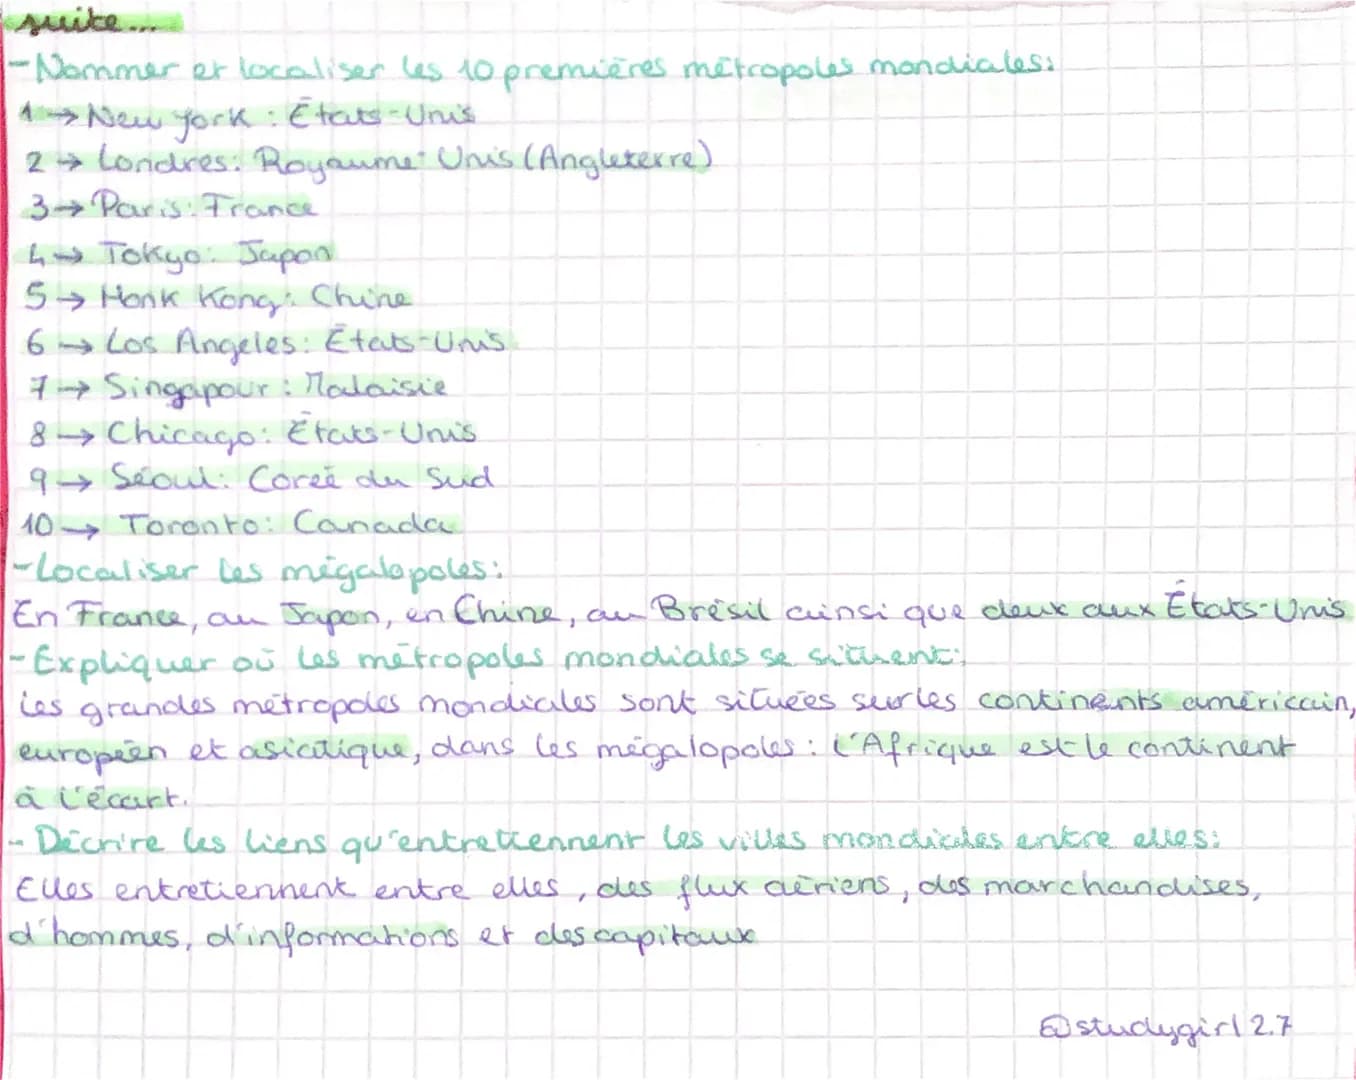 suite...
- Nommer et localiser les 10 premières métropoles mondiales:
1 → New york : États-Unis
2 → Londres: Royaume-Unis (Angleterre)
3 → Paris: France
4 → Tokyo: Japon
5 → Honk Kong: Chine
6 → Los Angeles: États-Unis
7 → Singapour : Malaisie
8 → Chicago: États-Unis
9 → Séoul: Coreé du Sud
10 → Toronto: Canada
- Localiser les mégalopoles:
En France, au Japon, en Chine, au Brésil ainsi que deux aux États-Unis
- Expliquer où les métropoles mondiales se situent:
Les grandes métropoles mondiales sont situées sur les continents américain,
européen et asiatique, dans les mégalopoles : L'Afrique est le continent
à l'écart.
- Décrire les liens qu'entretiennent les villes mondiales entre elles:
Elles entretiennent entre elles, des flux aériens, des marchandises,
d'hommes, d'informations et des capitaux
@studygirl 2.7